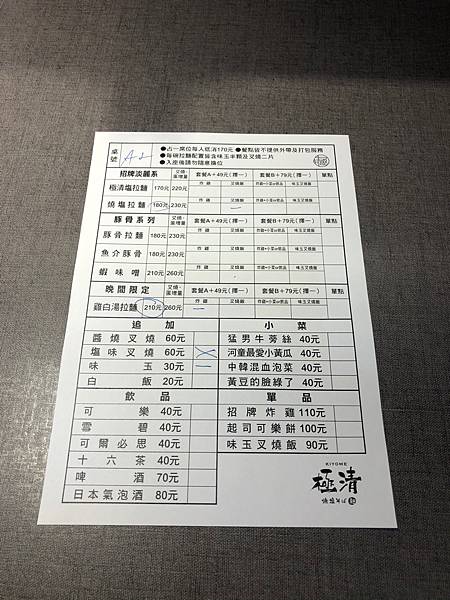 桌號 A2
●占一席位每人低消170元 ●餐點皆不提供外帶及打包服務
●每碗拉麵配置皆含味玉半顆及叉燒二片
●入座後請勿隨意換位
招牌淡麗系 叉燒‧蛋增量 套餐A+49元(擇一) 套餐B+79元(擇一) 單點
極清塩拉麵 170元 220元 炸雞 叉燒飯 炸雞+小菜or飲品 味玉叉燒飯
燒塩拉麵 180元 230元 一
豚骨系列 叉燒‧蛋增量 套餐A+49元(擇一) 套餐B+79元(擇一) 單點
豚骨拉麵 180元 230元 炸雞 叉燒飯 炸雞+小菜or飲品 味玉叉燒飯
魚介豚骨 180元 230元
蝦味噌 210元 260元
晚間限定 叉燒‧蛋增量 套餐A+49元(擇一) 套餐B+79元(擇一) 單點
雞白湯拉麵 210元 260元 炸雞 叉燒飯 炸雞+小菜or飲品 味玉叉燒飯
一
追加 小菜
醬燒叉燒 60元 猛男牛蒡絲 40元
塩味叉燒 60元 河童最愛小黃瓜 40元
味玉 30元 一 中韓混血泡菜 40元
白飯 20元 黃豆的臉綠了 40元
飲品 單品
可樂 40元 招牌炸雞 110元
雪碧 40元 起司可樂餅 100元
可爾必思 40元 味玉叉燒飯 90元
十六茶 40元
啤酒 70元
日本氣泡酒 80元
KIYOME
極清